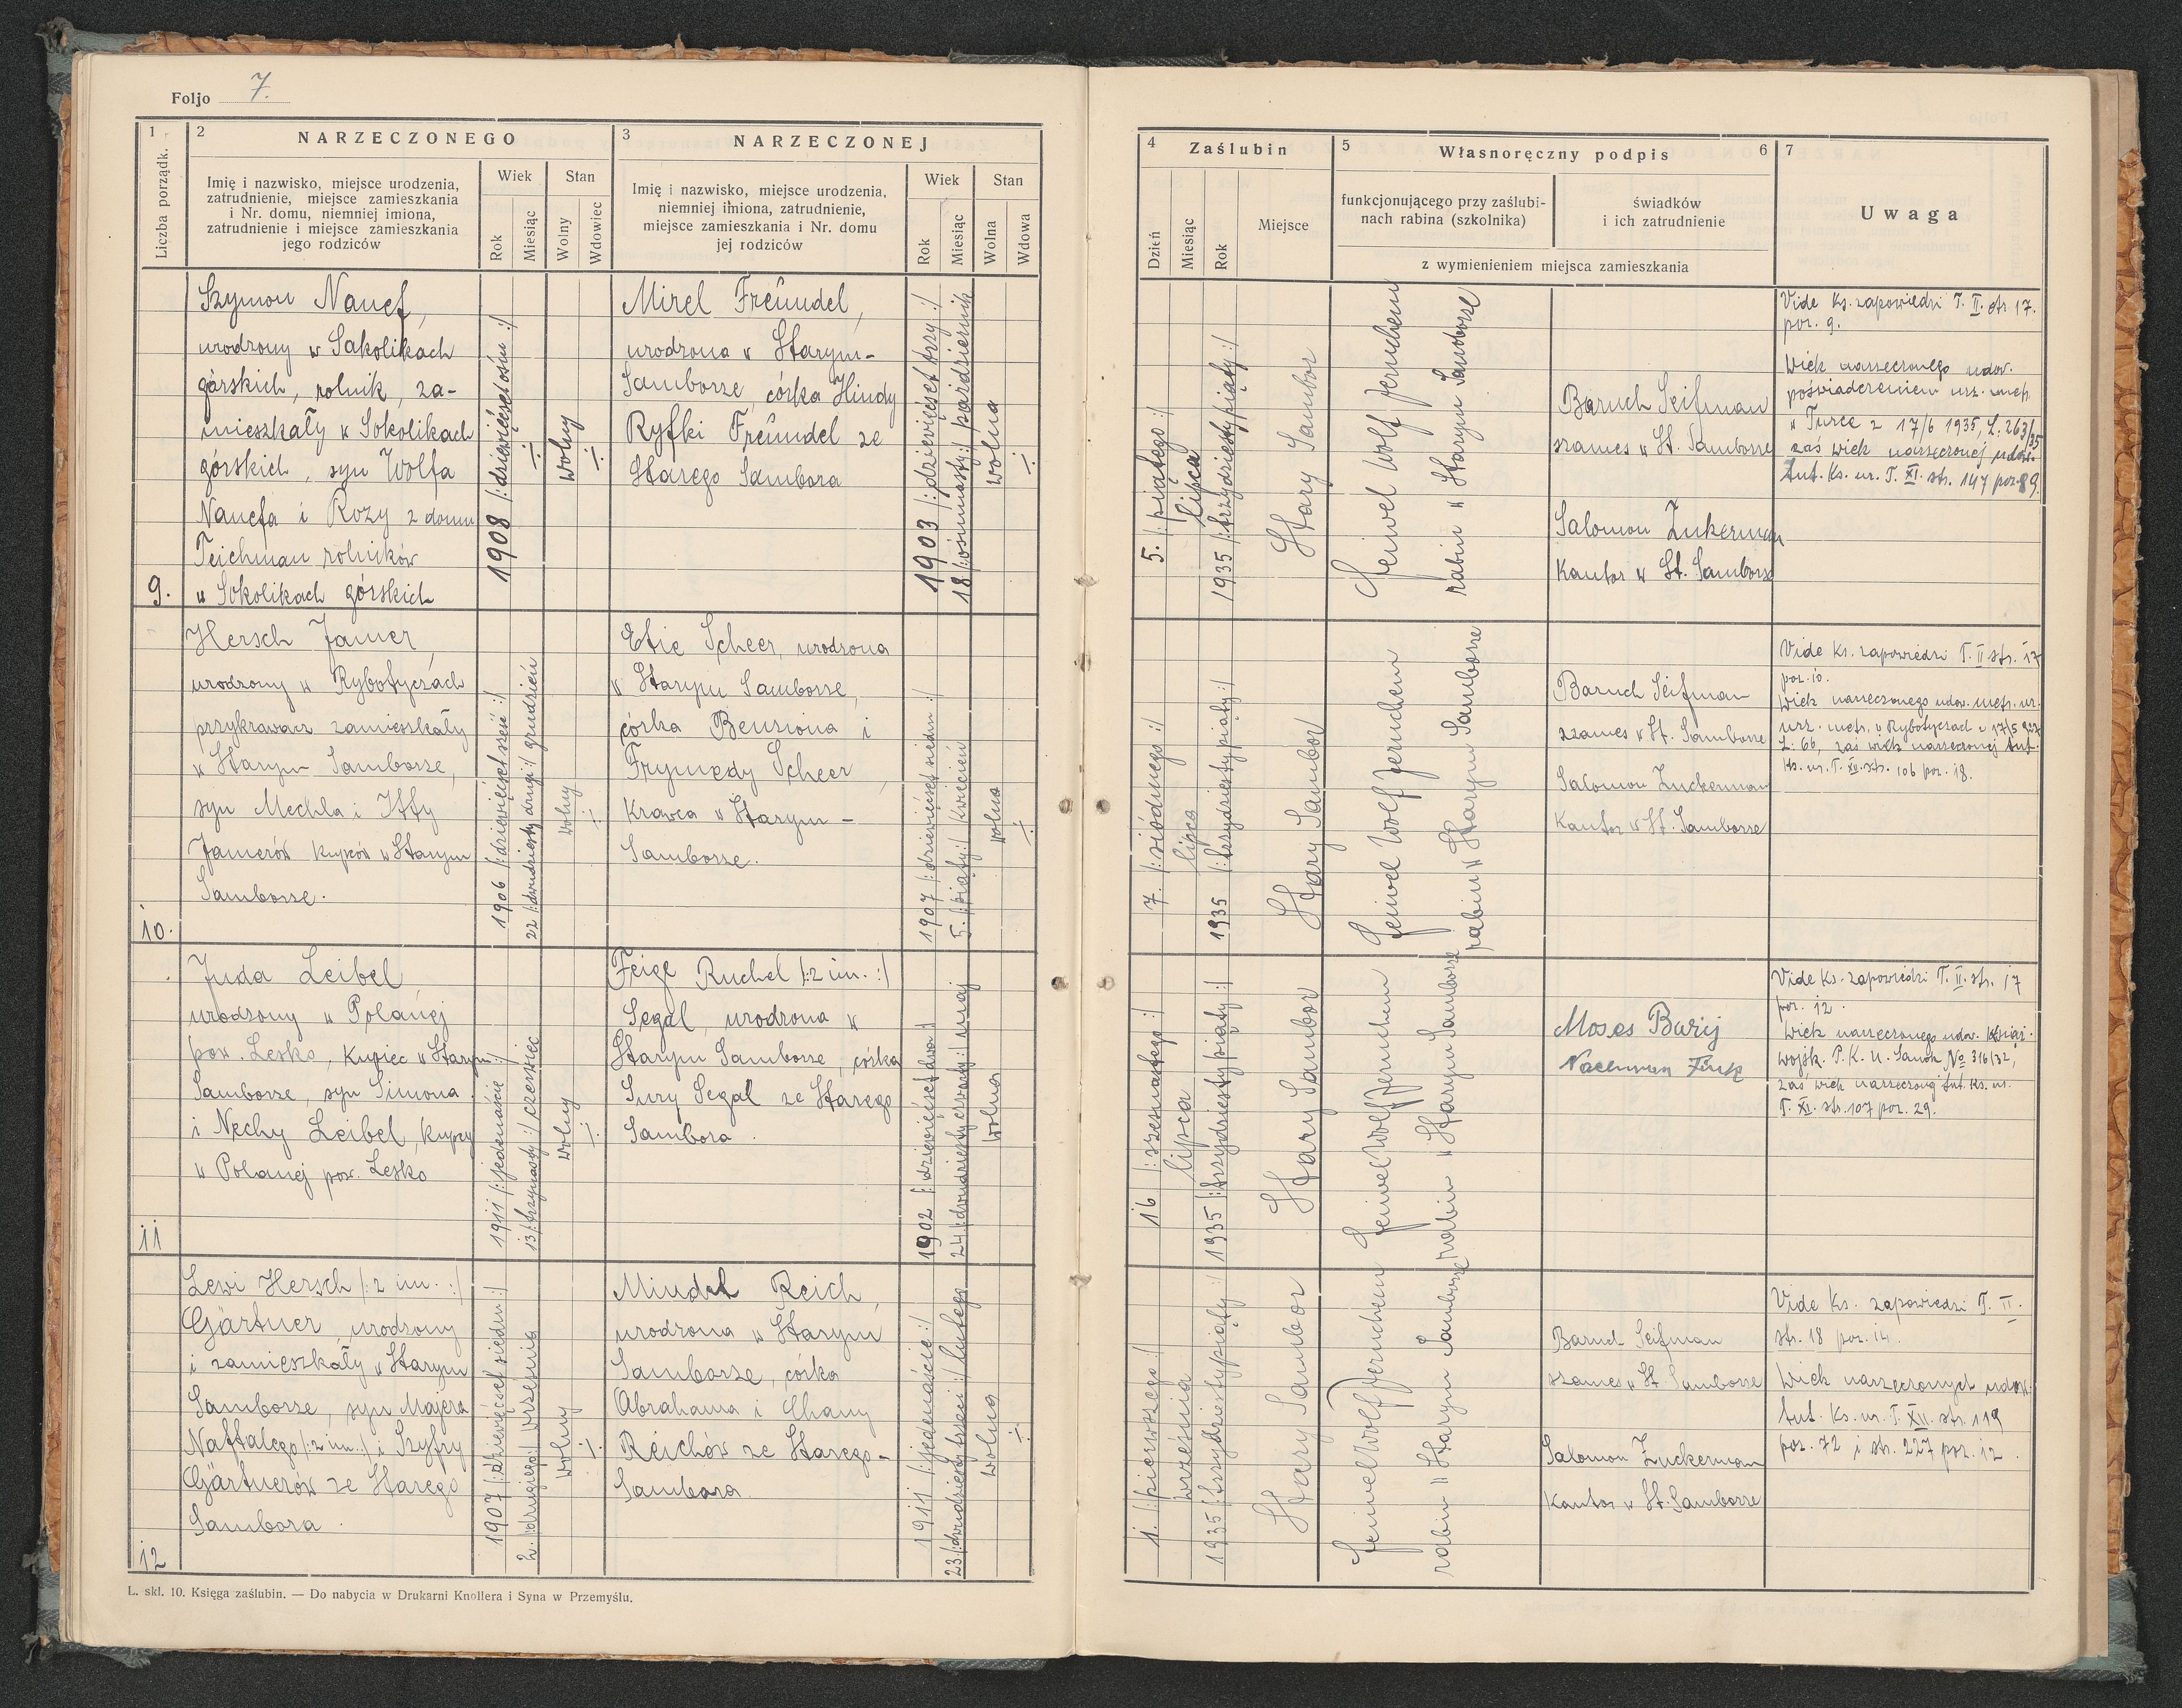 Foljo 7.
1 Liczba porządk.
2 NARZECZONEGO
Imię i nazwisko, miejsce urodzenia,
zatrudnienie, miejsce zamieszkania
i Nr. domu, niemniej imiona,
zatrudnienie i miejsce zamieszkania
jego rodziców
Wiek
Rok
Miesiąc
Stan
Wolny
Wdowiec
3 NARZECZONEJ
Imię i nazwisko, miejsce urodzenia,
niemniej imiona, zatrudnienie,
miejsce zamieszkania i Nr. domu
jej rodziców
Wiek
Rok
Miesiąc
Stan
Wolna
Wdowa
4 Zaślubin
Dzień
Miesiąc
Rok
Miejsce
5 Własnoręczny podpis 6
funkcjonującego przy zaślubi-
nach rabina (szkolnika)
świadków
i ich zatrudnienie
z wymienieniem miejsca zamieszkania
7 Uwaga
9.
Szymon Nanef,
urodzony w Sakolikach
górskich, rolnik, za-
mieszkały w Sokolikach
górskich, syn Wolfa
Nanefa i Rozy z domu
Teichman rolników
w Sokolikach górskich
1908 /:dziewięćset ośm:/
÷
wolny
÷
Mirel Freündel,
urodzona w Starym-
Samborze, córka Hindy
Ryfki Freündel ze
Starego Sambora
1903 /:dziewięćset trzy:/
18 /:ośmnasty:/ październik
wolna
÷
5. /:piątego:/
lipca
1935 /:trzydziesty piąty:/
Stary Sambor
Feiwel Wolf Jeruchem
rabin w Starym Samborze
Baruch Seifman
szames w St. Samborze
Salomon Zukerman
Kantor w St. Samborze
Vide Ks. zapowiedzi T. II. str 17.
poz. 9.
Wiek narzeczonego udow.
poświadczeniem urz. metr.
w Turce z 17/6 1935, L: 263/35
zaś wiek narzeczonej udow.
tut. Ks. ur. T. XI. str. 147 poz. 89.
10.
Hersch Jamer,
urodzony w Rybotyczach
przykrawacz zamieszkały
w Starym Samborze,
syn Mechla i Itty
Jamerów kupców w Starym
Samborze.
1906 /:dziewięćset sześć:/
22 /:dwudziesty drugi:/ grudzień
wolny
÷
Etie Scheer, urodzona
w Starym Samborze,
córka Benziona i
Frymedy Scheer,
Krawca w Starym-
Samborze.
1907 /:dziewięćset siedm:/
5. /:piąty:/ Kwiecień
wolna
÷
7. /:siódmego:/
lipca
1935 /:trzydziesty piąty:/
Stary Sambor
Feiwel Wolf Jeruchem
rabin w Starym Samborze
Baruch Seifman
szames w St. Samborze
Salomon Zuckerman
Kantor w St. Samborze
Vide Ks. zapowiedzi T. II str. 17
poz. 10.
Wiek narzeczonego udow. metr. ur.
urz. metr. w Rybotyczach z 17/5 927
L: 66, zaś wiek narzeczonej tut.
Ks. ur. T. XII. str. 106 poz. 18.
11
Juda Leibel,
urodzony w Polanej
pow. Lesko, Kupiec w Starym
Samborze, syn Simona
i Nechy Leibel, kupcy
w Polanej pow. Lesko
1911 /:jedenaście:/
13 /:trzynasty:/ czerwiec
wolny
÷
Feige Ruchel /:2 im.:/
Segal, urodzona w
Starym Samborze, córka
Sury Segal ze Starego
Sambora.
1902 /:dziewięćset dwa:/
24 /:dwudziesty czwarty:/ maj
wolna
16 /:szesnastego:/
lipca
1935 /:trzydziesty piąty:/
Stary Sambor
Feiwel Wolf Jeruchem
rabin w Starym Samborze
Moses Burij
Nachman Fink
Vide Ks. zapowiedzi T. II. str. 17
poz. 12.
Wiek narzeczonego udow. książ.
wojsk. P. K. U. Sanok No 316/32,
zaś wiek narzeczonej tut. Ks. ur.
T. XI. str. 107 poz. 29.
12
Lewi Hersch /:2 im.:/
Gärtner, urodzony
i zamieszkały w Starym
Samborze, syn Majera
Naftalego /:2 im.:/ i Szyfry
Gärtnerów ze Starego
Sambora.
1907 /:dziewięćset siedm:/
2. /:drugiego:/ września
wolny
÷
Mindel Reich,
urodzona w Starym
Samborze, córka
Abrahama i Chany
Reichów ze Starego-
Sambora.
1911 /:jedenaście:/
23 /:dwudziesty trzeci:/ lutego
wolna
÷
1. /:pierwszego:/
września
1935 /:trzydziesty piąty:/
Stary Sambor
Feiwel Wolf Jeruchem
rabin w Starym Samborze
Baruch Seifman
szames w St Samborze
Salomon Zuckerman
Kantor w St. Samborze
Vide Ks. zapowiedzi T. II.
str. 18 poz. 14.
Wiek narzeczonych udow.
tut. Ks. ur. T. XII. str. 119
poz. 72 i str. 227 poz. 12.
L. skł. 10. Księga zaślubin. — Do nabycia w Drukarni Knollera i Syna w Przemyślu.